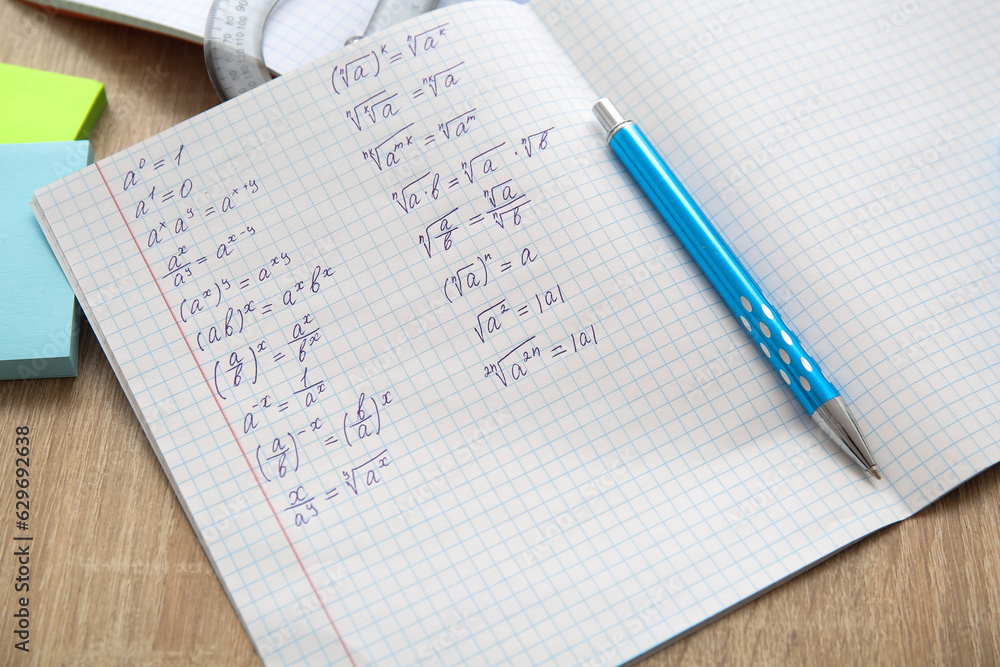 a⁰ = 1
a¹ = 0
aˣ aʸ = aˣ⁺ʸ
aˣ/aʸ = aˣ⁻ʸ
(aˣ)ʸ = aˣʸ
(ab)ˣ = aˣ bˣ
(a/b)ˣ = aˣ/bˣ
a⁻ˣ = 1/aˣ
(a/b)⁻ˣ = (b/a)ˣ
x/aʸ = ʸ√aˣ
(ⁿ√a)ᵏ = ⁿ√aᵏ
ⁿ√ᵏ√a = ⁿᵏ√a
ⁿᵏ√aᵐᵏ = ⁿ√aᵐ
ⁿ√a·b = ⁿ√a · ⁿ√b
ⁿ√a/b = ⁿ√a/ⁿ√b
(ⁿ√a)ⁿ = a
√a² = |a|
²ⁿ√a²ⁿ = |a|
Adobe Stock | #629692638